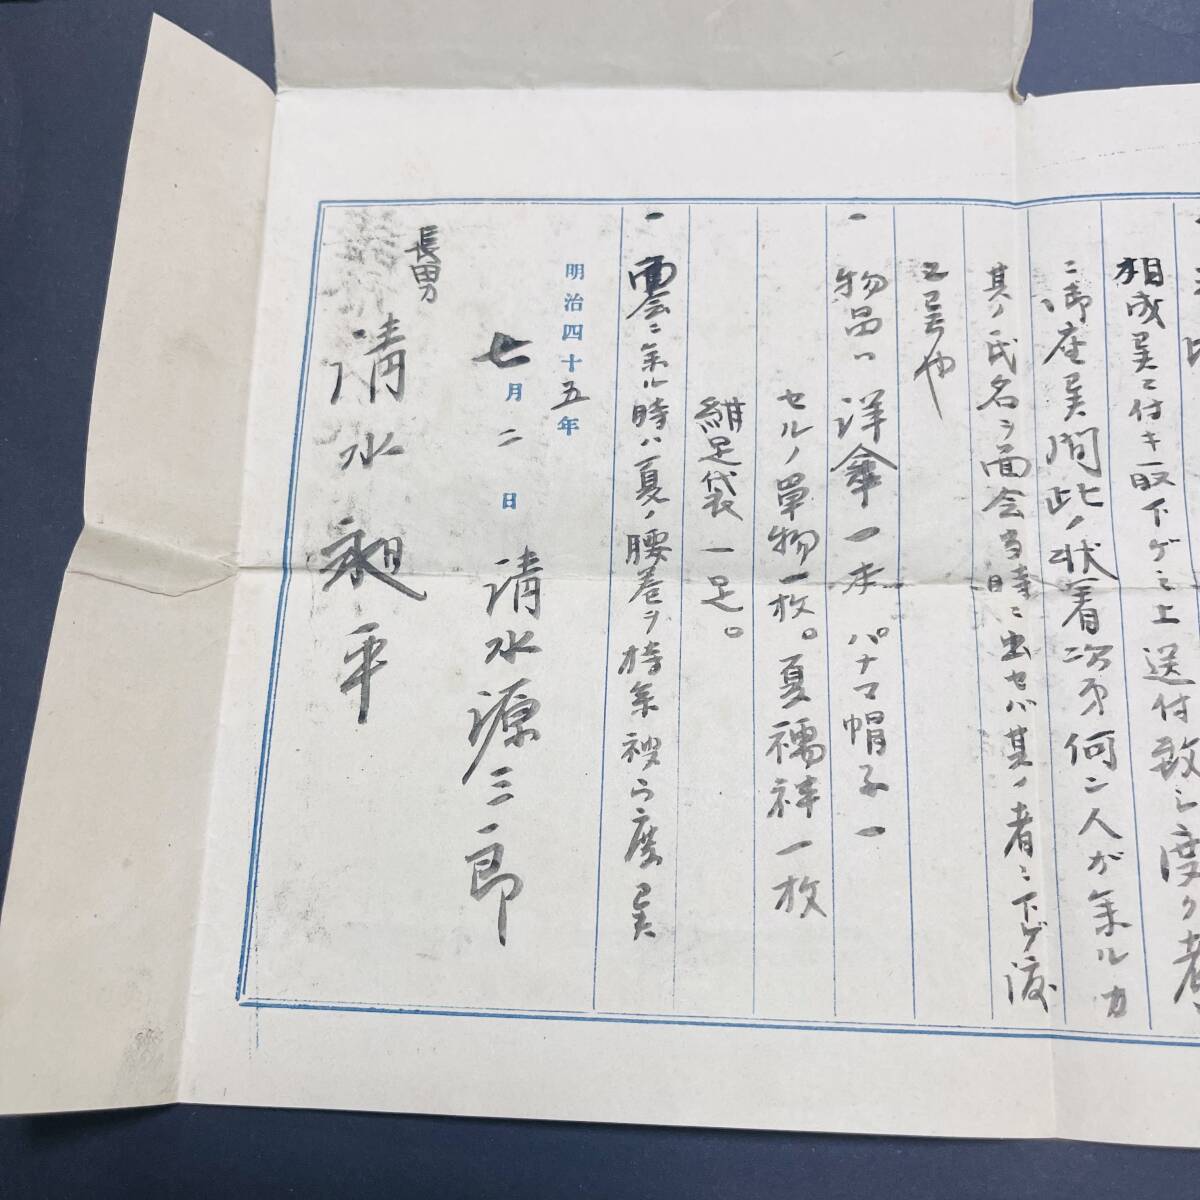 相成候ニ付キ取下ゲミ上送付致シ度ク者
ニ御座候間此ノ状着次第何ン人ガ来ルカ
其ノ氏名ヲ面会当時ニ出セバ其ノ者ニ下ゲ渡
一 物品ハ洋傘一本 パナマ帽子一
セルノ単物一枚。夏襦袢一枚
紺足袋一足。
一 面会ニ来ル時ハ夏ノ腰巻ヲ持来被ラ度候
明治四十五年
七月二日 清水源三郎
長男
清水昶平